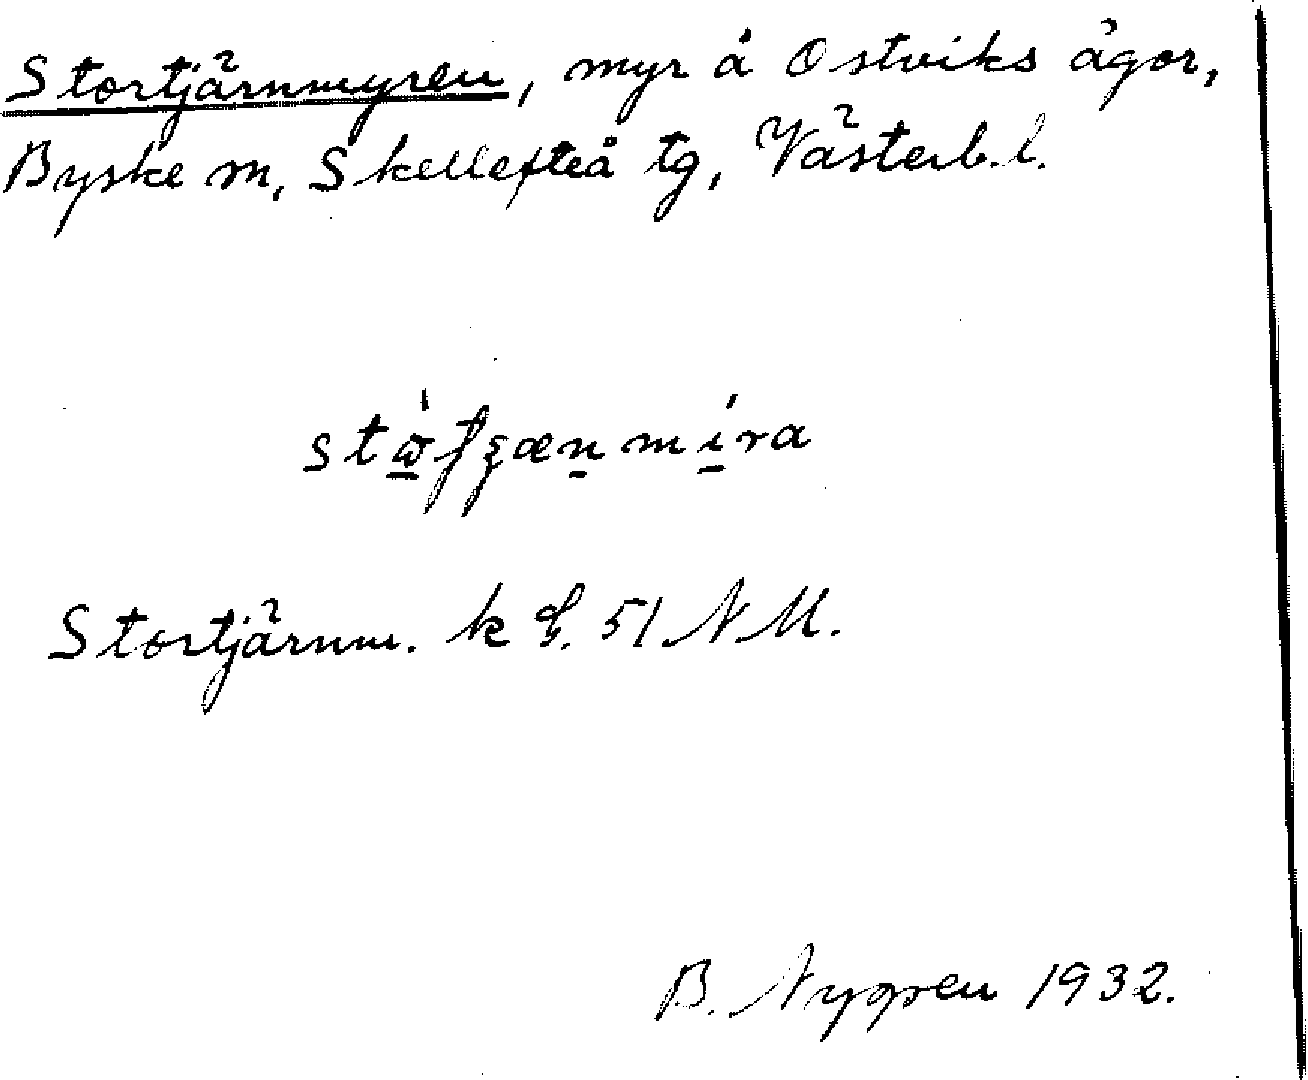 Stortjärnmyren, myr å Ostviks ägor,
Byske sn, Skellefteå tg, Västerb. l.
Stortjärnm. k 51 NM.
B. Nygren 1932.